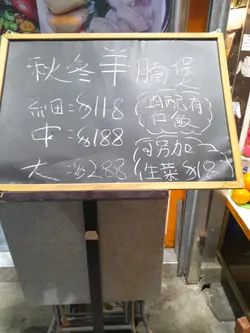 秋冬羊腩煲
細:$118
中:$188
大:$288
均配有
白飯
可另加
生菜$18